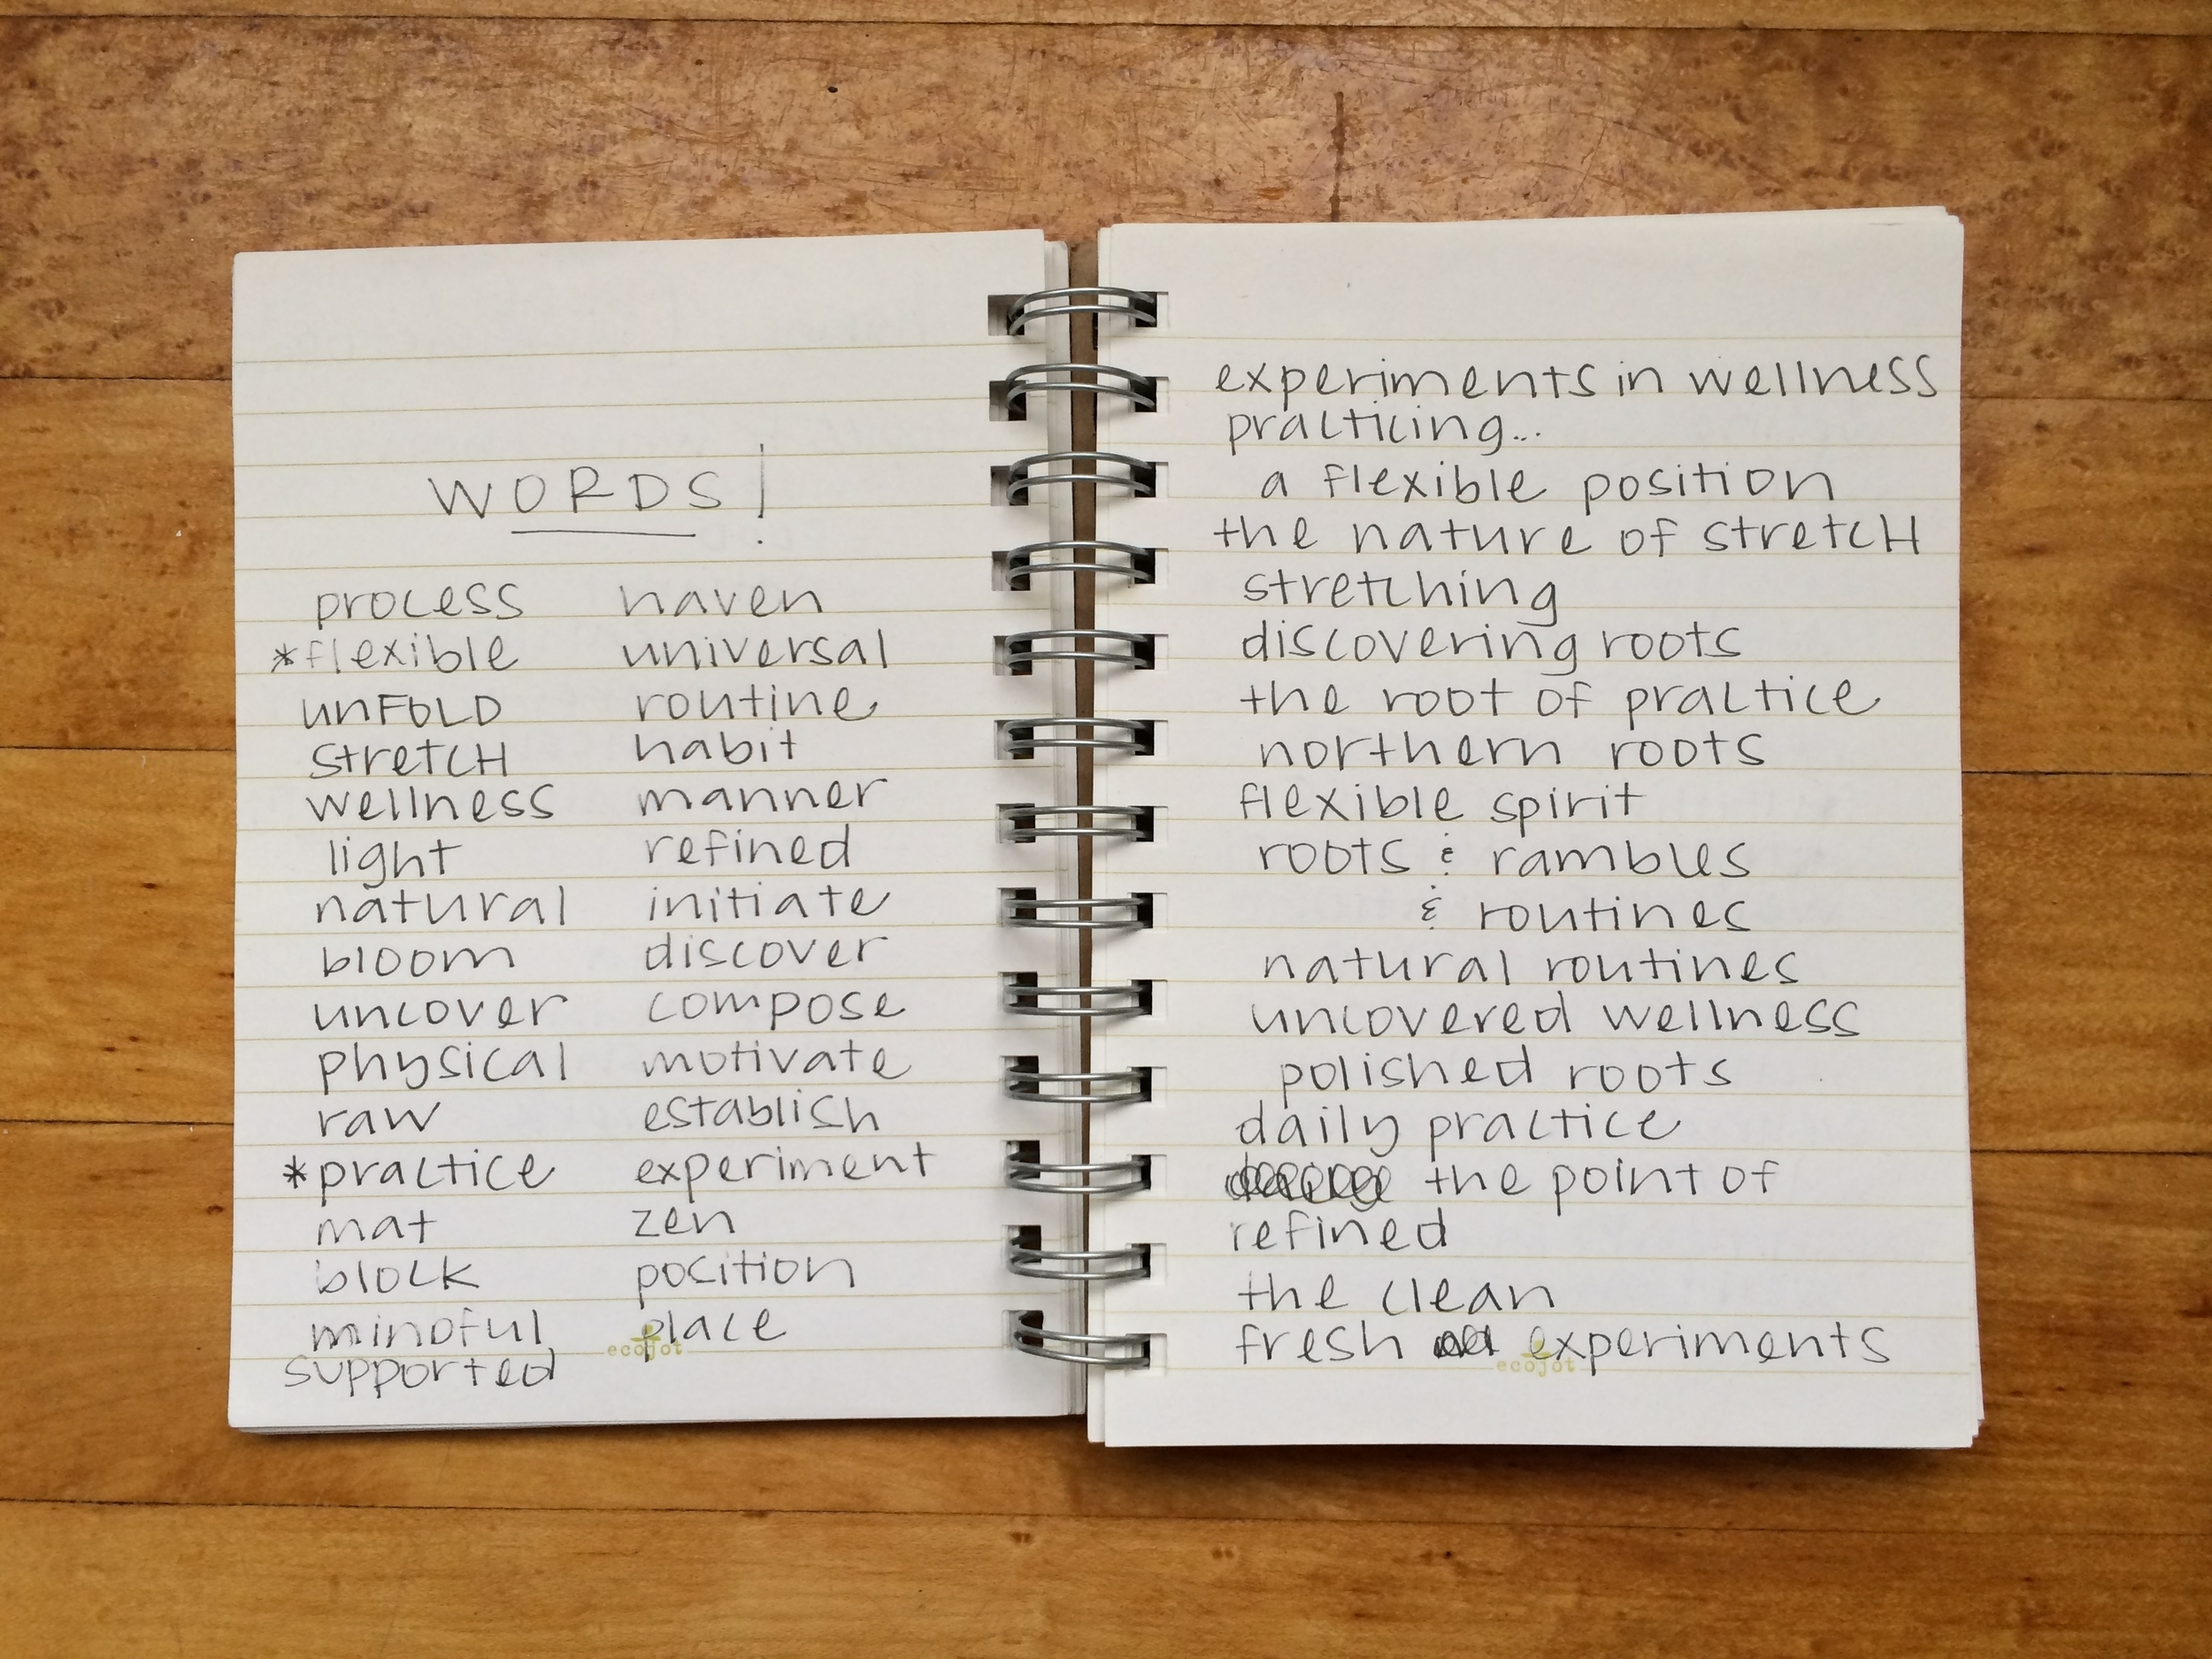 WORDS!
process haven
*flexible universal
unFOLD routine
stretcH habit
wellness manner
light refined
natural initiate
bloom discover
uncover compose
physical motivate
raw establish
*practice experiment
mat zen
block position
mindful place
supported
ecojot
experiments in wellness
practicing...
a flexible position
the nature of stretcH
stretching
discovering roots
the root of practice
northern roots
flexible spirit
roots & rambles
& routines
natural routines
uncovered wellness
polished roots
daily practice
the point of
refined
the clean
fresh experiments
ecojot